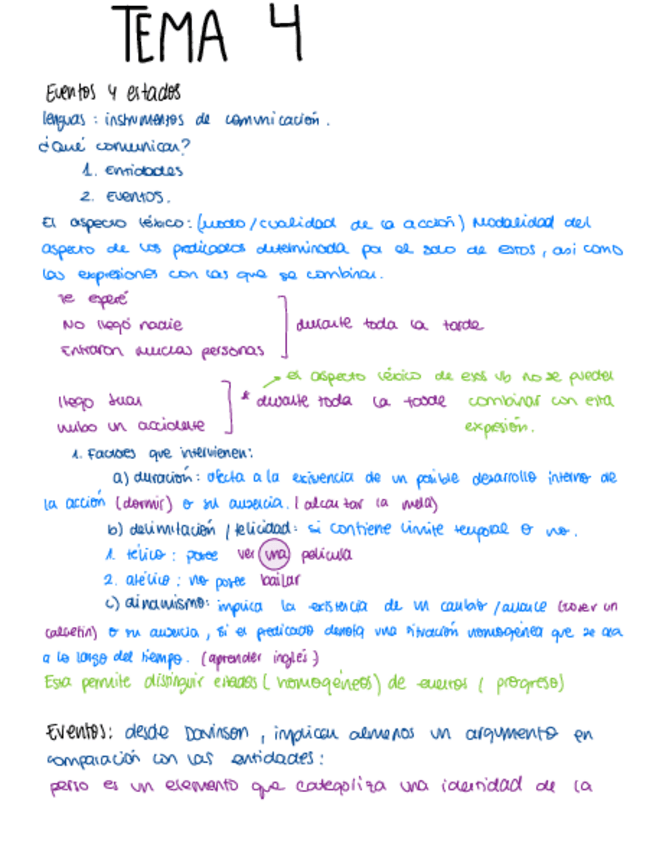 TEMA 4
Eventos y estados
lenguas : instrumentos de comunicación.
¿Qué comunican?
1. Entidades
2. Eventos.
El aspecto léxico: (modo / cualidad de la acción) Modalidad del
aspecto de los predicados determinada por el solo de estos, asi como
las expresiones con las que se combinan.
Te esperé
No llegó nadie
Entraron muchas personas
durante toda la tarde
el aspecto léxico de esos vb no se pueden
llegó Juan
* durante toda la tarde
combinar con esta
hubo un accidente
expresión.
1. Factores que intervienen:
a) duración: afecta a la existencia de un posible desarrollo interno de
la acción (dormir) o su ausencia. (alcanzar la meta)
b) delimitación / telicidad: si contiene límite temporal o no.
1. télico : posee ver una película
2. atélico : no posee bailar
c) dinamismo: implica la existencia de un cambio / avance (coser un
calcetín) o su ausencia, si el predicado denota una situación homogénea que se da
a lo largo del tiempo. (aprender inglés)
Esta permite distinguir estados (homogéneos) de eventos ( progreso)
Eventos: desde Davinson, implican almenos un argumento en
comparación con las entidades:
perro es un elemento que categoliza una identidad de la